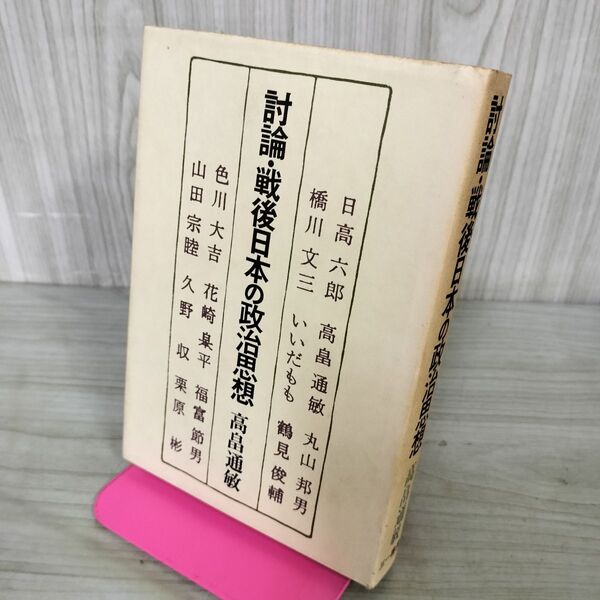 日高六郎　高畠通敏　丸山邦男
橋川文三　いいだもも　鶴見俊輔
討論・戦後日本の政治思想　高畠通敏
色川大吉　花崎皋平　福富節男
山田宗睦　久野収　栗原彬
討論・戦後日本の政治思想　高畠通敏